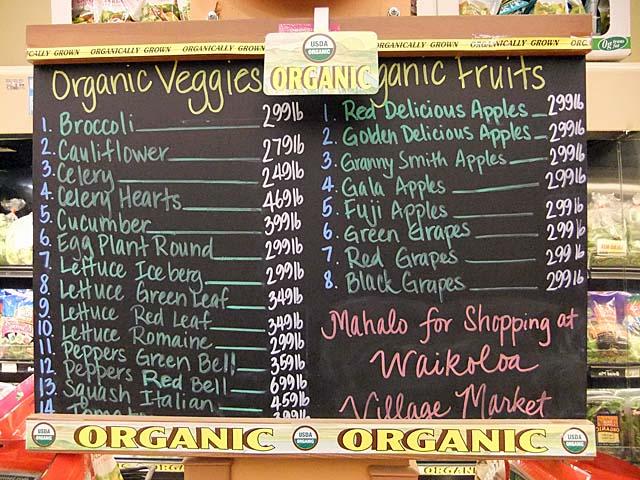 ORGANICALLY GROWN ORGANICALLY GROWN ORGANICALLY GROWN
USDA
ORGANIC
ORGANIC
Organic Veggies
1. Broccoli 299 lb
2. Cauliflower 279 lb
3. Celery 249 lb
4. Celery Hearts 469 lb
5. Cucumber 399 lb
6. Egg Plant Round 299 lb
7. Lettuce Iceberg 299 lb
8. Lettuce Green Leaf 349 lb
9. Lettuce Red Leaf 349 lb
10. Lettuce Romaine 299 lb
11. Peppers Green Bell 359 lb
12. Peppers Red Bell 699 lb
13. Squash Italian 459 lb
14
ganic Fruits
1. Red Delicious Apples 299 lb
2. Golden Delicious Apples 299 lb
3. Granny Smith Apples 299 lb
4. Gala Apples 299 lb
5. Fuji Apples 299 lb
6. Green Grapes 299 lb
7. Red Grapes 299 lb
8. Black Grapes 299 lb
Mahalo for Shopping at
Waikoloa
Village Market
USDA ORGANIC ORGANIC USDA ORGANIC ORGANIC USDA ORGANIC